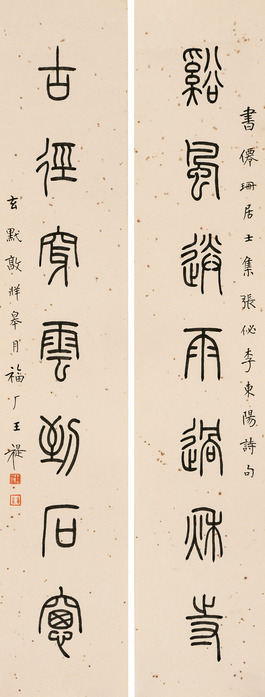 書僊珊居士集張佖李東陽詩句
谿風送雨過秋寺
古徑穿雲到石窗
玄默敦牂皋月福厂王禔